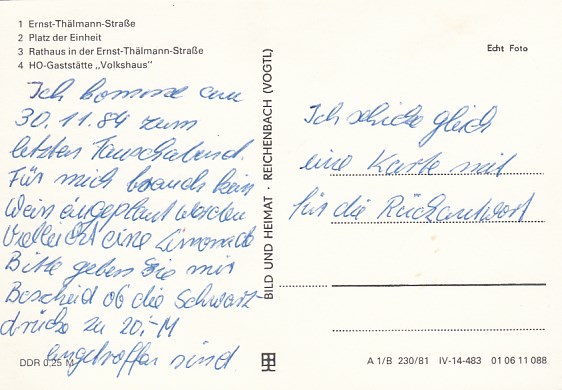 1 Ernst-Thälmann-Straße
2 Platz der Einheit
3 Rathaus in der Ernst-Thälmann-Straße
4 HO-Gaststätte „Volkshaus"
Echt Foto
Ich komme am
30.11.89 zum
letzten Tauschabend.
Für mich brauch kein
Wein eingeplant werden
Vielleicht eine Limonade
Bitte geben Sie mir
Bescheid ob die Schwarz-
drucke zu 20,-M
eingetroffen sind.
BILD UND HEIMAT · REICHENBACH (VOGTL)
Ich schicke gleich
eine Karte mit
für die Rückantwort
DDR 0,25 M
A 1/B 230/81 IV-14-483 01 06 11 088